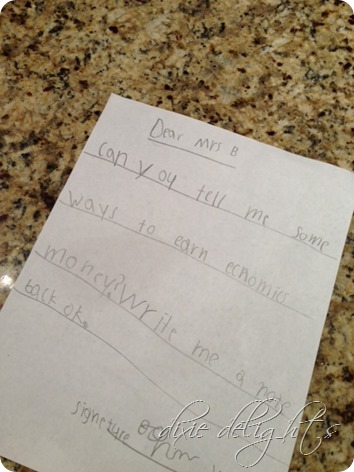 Dear Mrs B
can you tell me some
ways to earn economics
money? Write me a note
back ok.
signeture
dixie delights